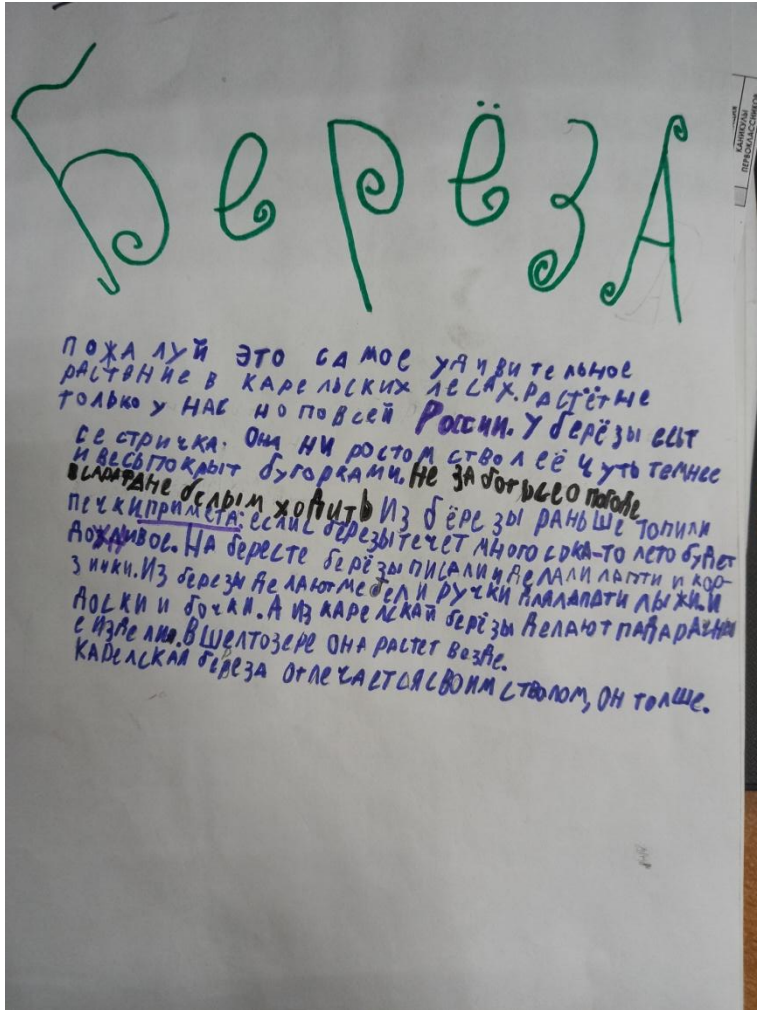 БерёзА
КАНИКУЛЫ
ПЕРВОКЛАССНИКОВ
ПОЖАЛУЙ ЭТО САМОЕ УДИВИТЕЛЬНОЕ
РАСТЕНИЕ В КАРЕЛЬСКИХ ЛЕСАХ. РАСТЁТ НЕ
ТОЛЬКО У НАС НО ПО ВСЕЙ РОССИИ. У БЕРЁЗЫ ЕСТ
СЕСТРИЧКА. ОНА НИ РОСТОМ СТВОЛ ЕЁ ЧУТЬ ТЕМНЕЕ
И ВЕСЬ ПОКРЫТ БУГОРКАМИ. НЕ ЗАБОТЬСЕ О ПОГОДЕ
В САРАФАНЕ БЕЛЫМ ХОДИТЬ ИЗ БЁРЕЗЫ РАНЬШЕ ТОПИЛИ
ПЕЧКИ ПРИМЕТА: ЕСЛИ С БЕРЕЗЫ ТЕЧЕТ МНОГО СОКА-ТО ЛЕТО БУДЕТ
ДОЖДЛИВОЕ. НА БЕРЕСТЕ БЕРЁЗЫ ПИСАЛИ И ДЕЛАЛИ ЛАПТИ И КОР-
ЗИНКИ. ИЗ БЕРЕЗЫ ДЕЛАЮТ МЕБЕЛ И РУЧКИ ЛЫЖИ. И
ДОСКИ И БОЧКИ. А ИЗ КАРЕЛСКАЙ БЕРЁЗЫ ДЕЛАЮТ ПАДАРАЧНЫ
Е ИЗДЕЛИЯ. В ШЕЛТОЗЕРЕ ОНА РАСТЕТ ВЕЗДЕ.
КАРЕЛСКАЯ БЕРЁЗА ОТЛЕЧАЕТСЯ СВОИМ СТВОЛОМ, ОН ТОЛШЕ.